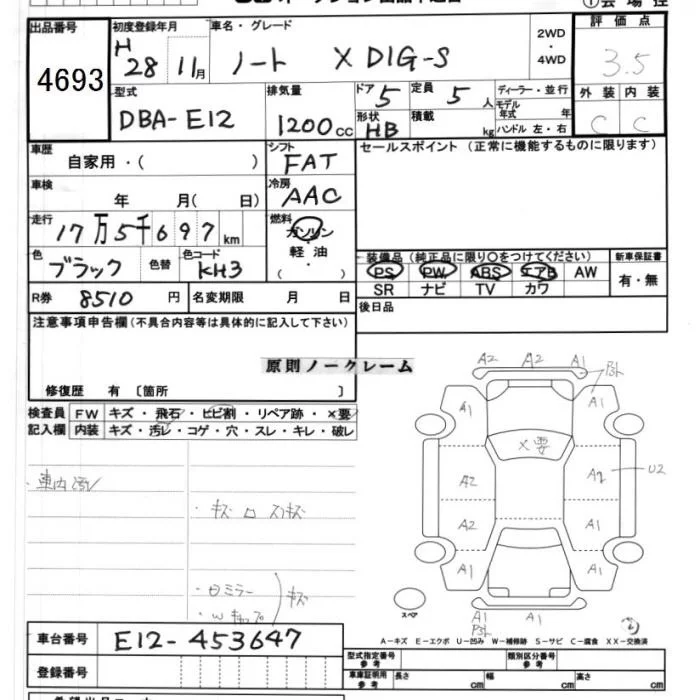 出品番号
4693
初度登録年月
H 28 11月
車名・グレード
ノート X DIG-S
2WD
・
4WD
評価点
3.5
型式
DBA-E12
排気量
1200cc
ドア
5
定員
5人
形状
HB
積載
kg
ディーラー・並行
モデル年式 年
ハンドル 左・右
外装 内装
C C
車歴
自家用・( )
シフト
FAT
セールスポイント (正常に機能するものに限ります)
車検
年 月( 日)
冷房
AAC
走行
17万5千697km
燃料
ガソリン
・
軽油
( )
色
ブラック
色替
色コード
KH3
装備品 (純正品に限り○をつけてください)
PS PW ABS エアB AW
SR ナビ TV カワ
新車保証書
有・無
R券 8510円
名変期限 月 日
後日品
注意事項申告欄(不具合内容等は具体的に記入して下さい)
原則ノークレーム
修復歴 有 〔箇所 〕
検査員記入欄
FW キズ・飛石・ヒビ割・リペア跡・×要
内装 キズ・汚レ・コゲ・穴・スレ・キレ・破レ
・車内汚レ
・キズ
・Wキャップ
キズ
A2 A2 A1
A1 A1
X要
A2 A2 U2
A2 A1
A1 A1
A1 A1
スペア
A-キズ E-エクボ U-凹み W-補修跡 S-サビ C-腐食 XX-交換済
車台番号
E12-453647
登録番号
型式指定番号
参考
類別区分番号
参考
車庫証明用
参考
長さ cm 幅 cm 高さ cm